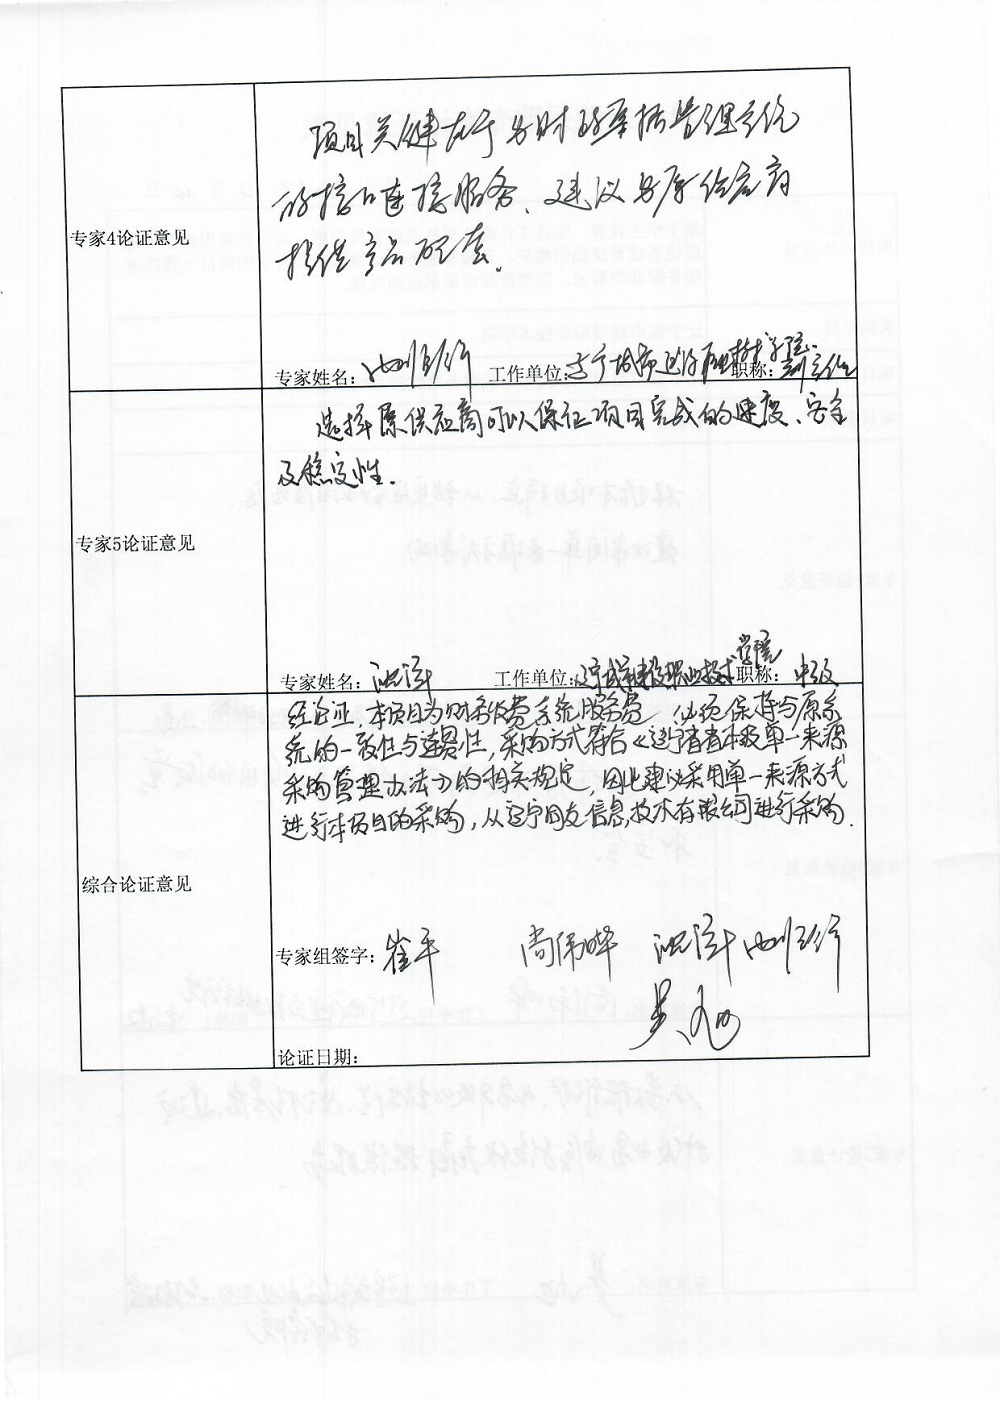 项目关键在于与财政票据管理系统
的接口连接服务、建议与原供应商
提供产品配套.
专家4论证意见
专家姓名: 工作单位: 辽宁城市建设职业技术学院 职称: 副主任
选择原供应商可以保证项目完成的速度、安全
及稳定性.
专家5论证意见
专家姓名: 工作单位: 辽宁城市建设职业技术学院 职称: 中级
经论证,本项目为财务收费系统服务费 必须保持与原系
统的一致性与连贯性,采购方式符合《辽宁省省本级单一来源
采购管理办法》的相关规定,因此建议采用单一来源方式
进行本项目的采购,从辽宁网友信息技术有限公司进行采购.
综合论证意见
专家组签字: 崔平 尚伟晔
吴旭
论证日期: